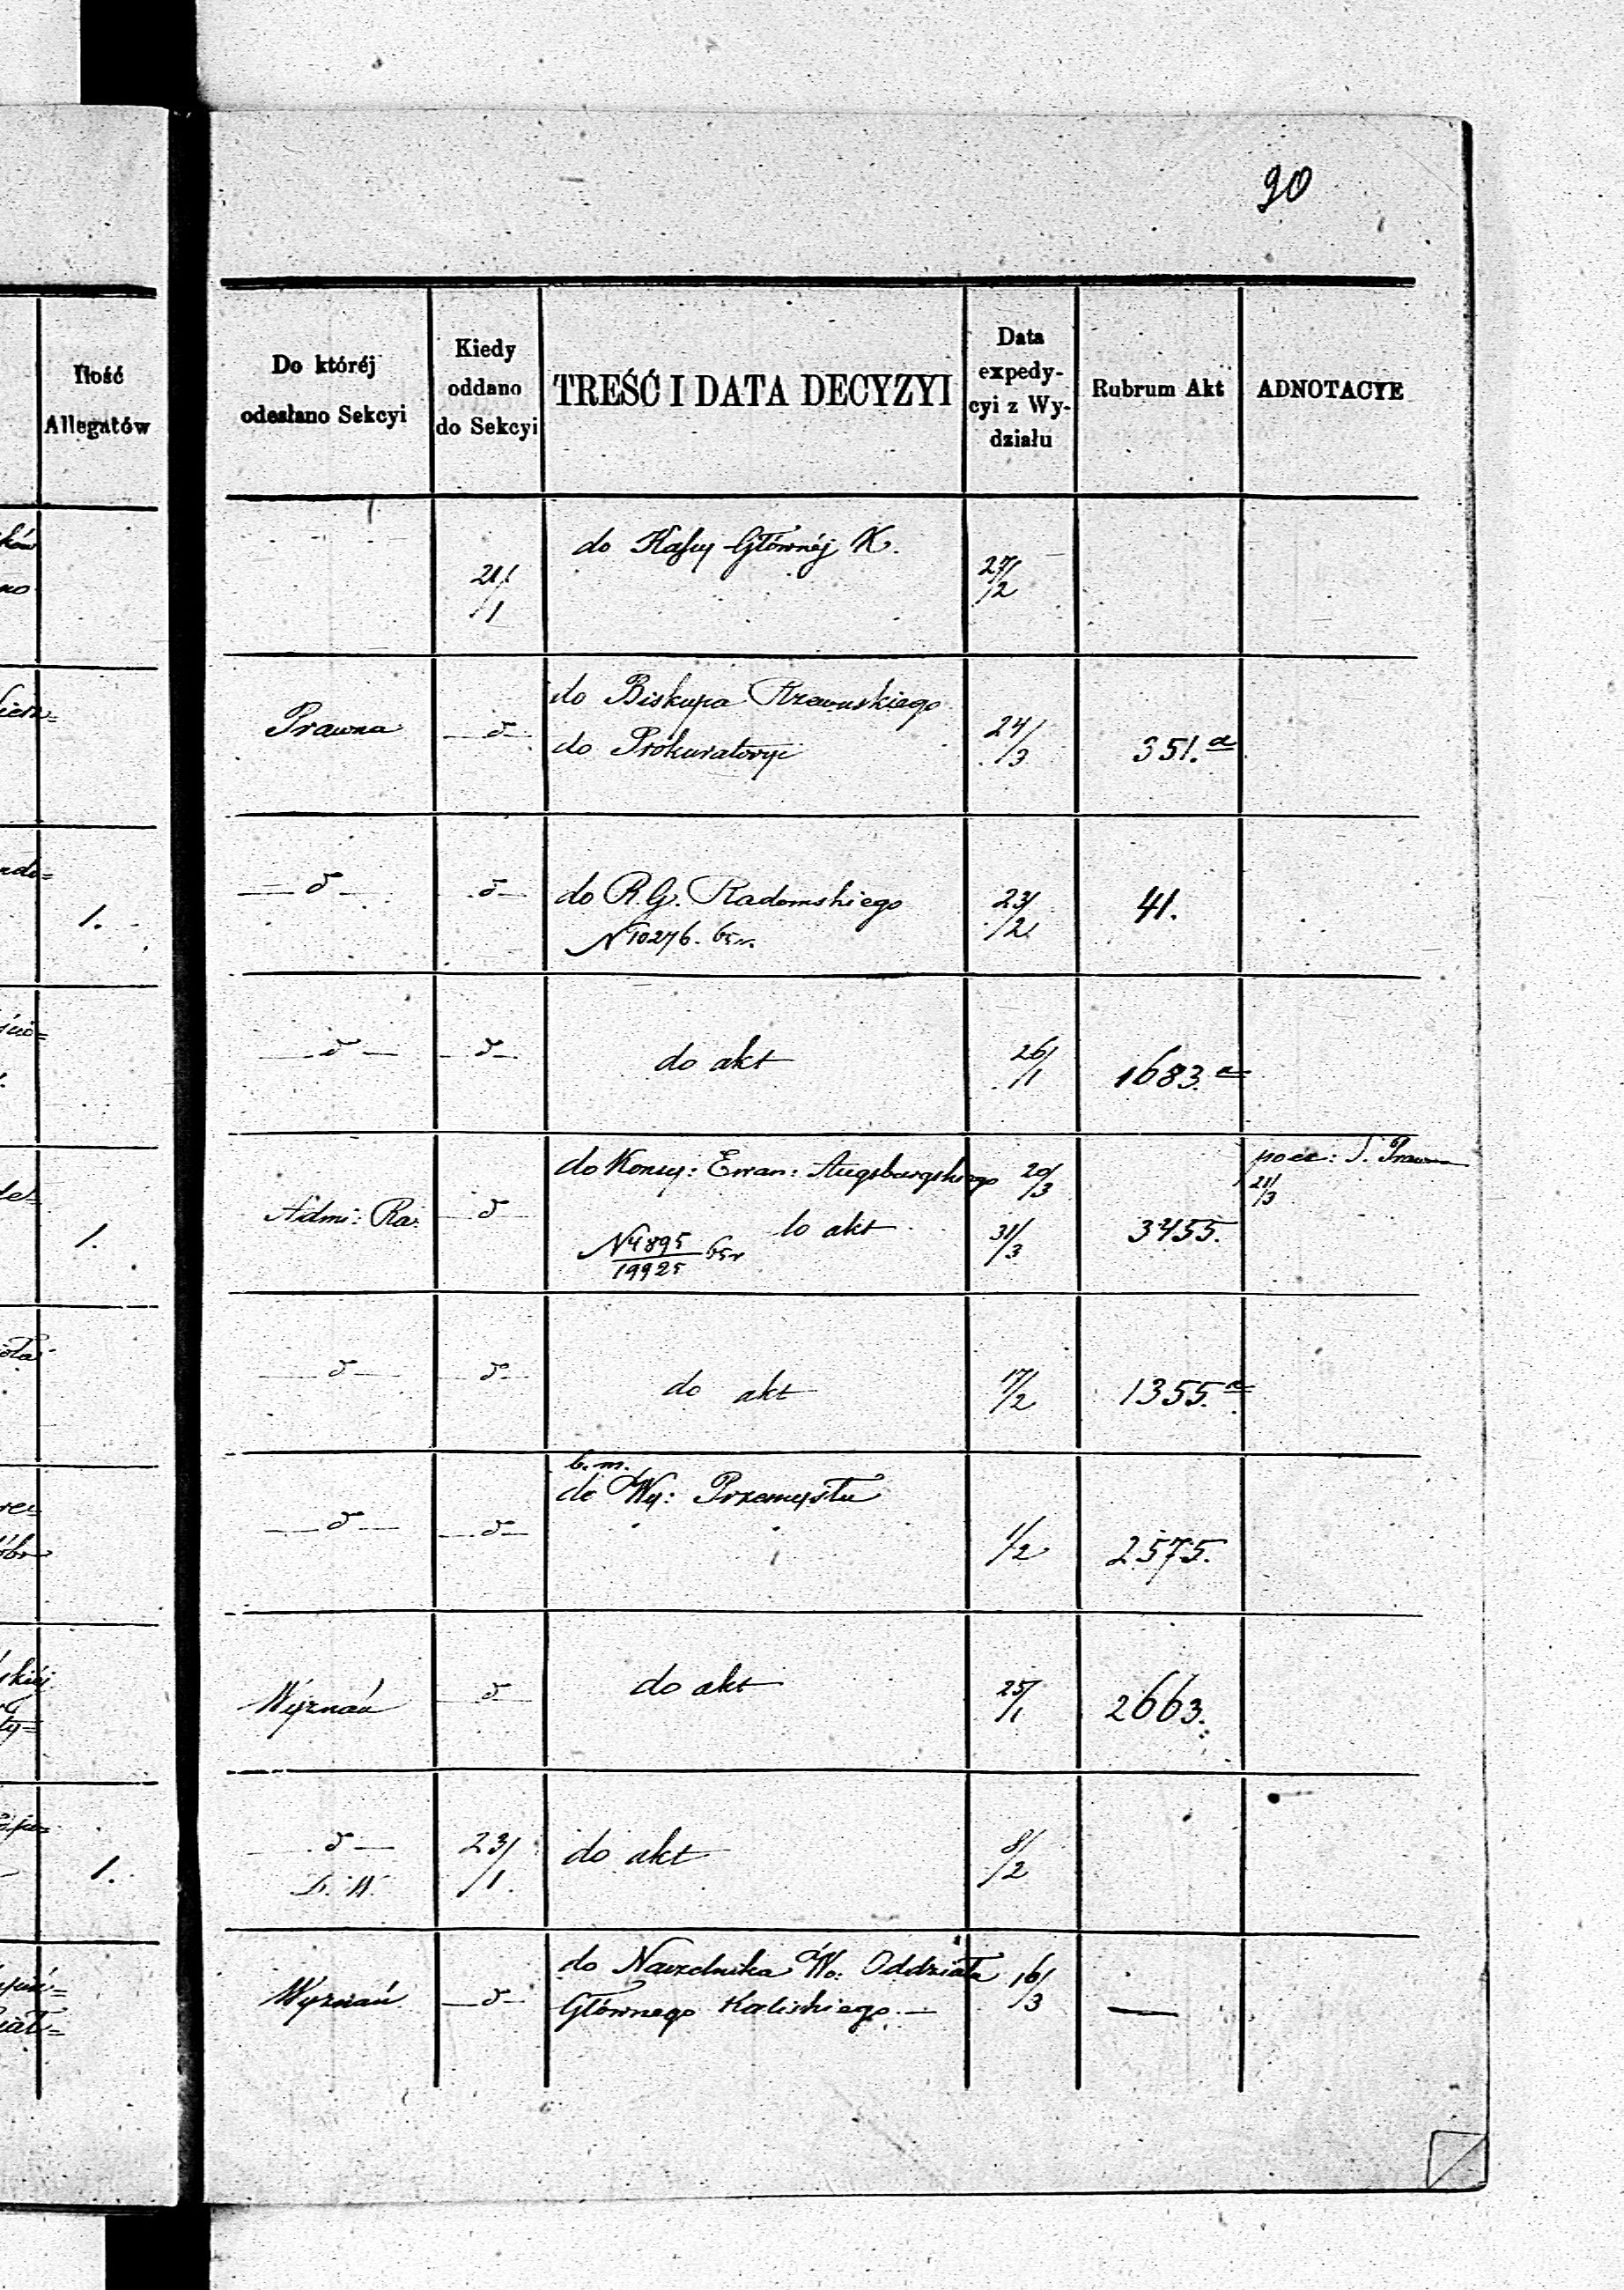 90
Ilość
Allegatów
Do któréj
odesłano Sekcyi
Kiedy
oddano
do Sekcyi
TREŚĆ I DATA DECYZYI
Data
expedy-
cyi z Wy-
działu
Rubrum Akt
ADNOTACYE
21/1
do Kassy Głównéj K.
27/2
Prawna
do Biskupa
do Prokuratoryi
24/3
351.a
1.
do R. G. Radomskiego
N 10276.
23/2
41.
do akt
26/1
1683.a
1.
Admi: Ra:
do Konsy: Ewan: Augsburgskiego
20/3
N 4895
19925
do akt
31/3
3455.
S. Prawna
21/3
do akt
17/2
1355.a
b. m.
do Wy: Przemysłu
1/2
2575.
Wyznań
do akt
25/1
2663.
1.
23/1
do akt
8/2
Wyznań
do Naczelnika Wo: Oddziału
Głównego Kaliskiego. —
16/3
—